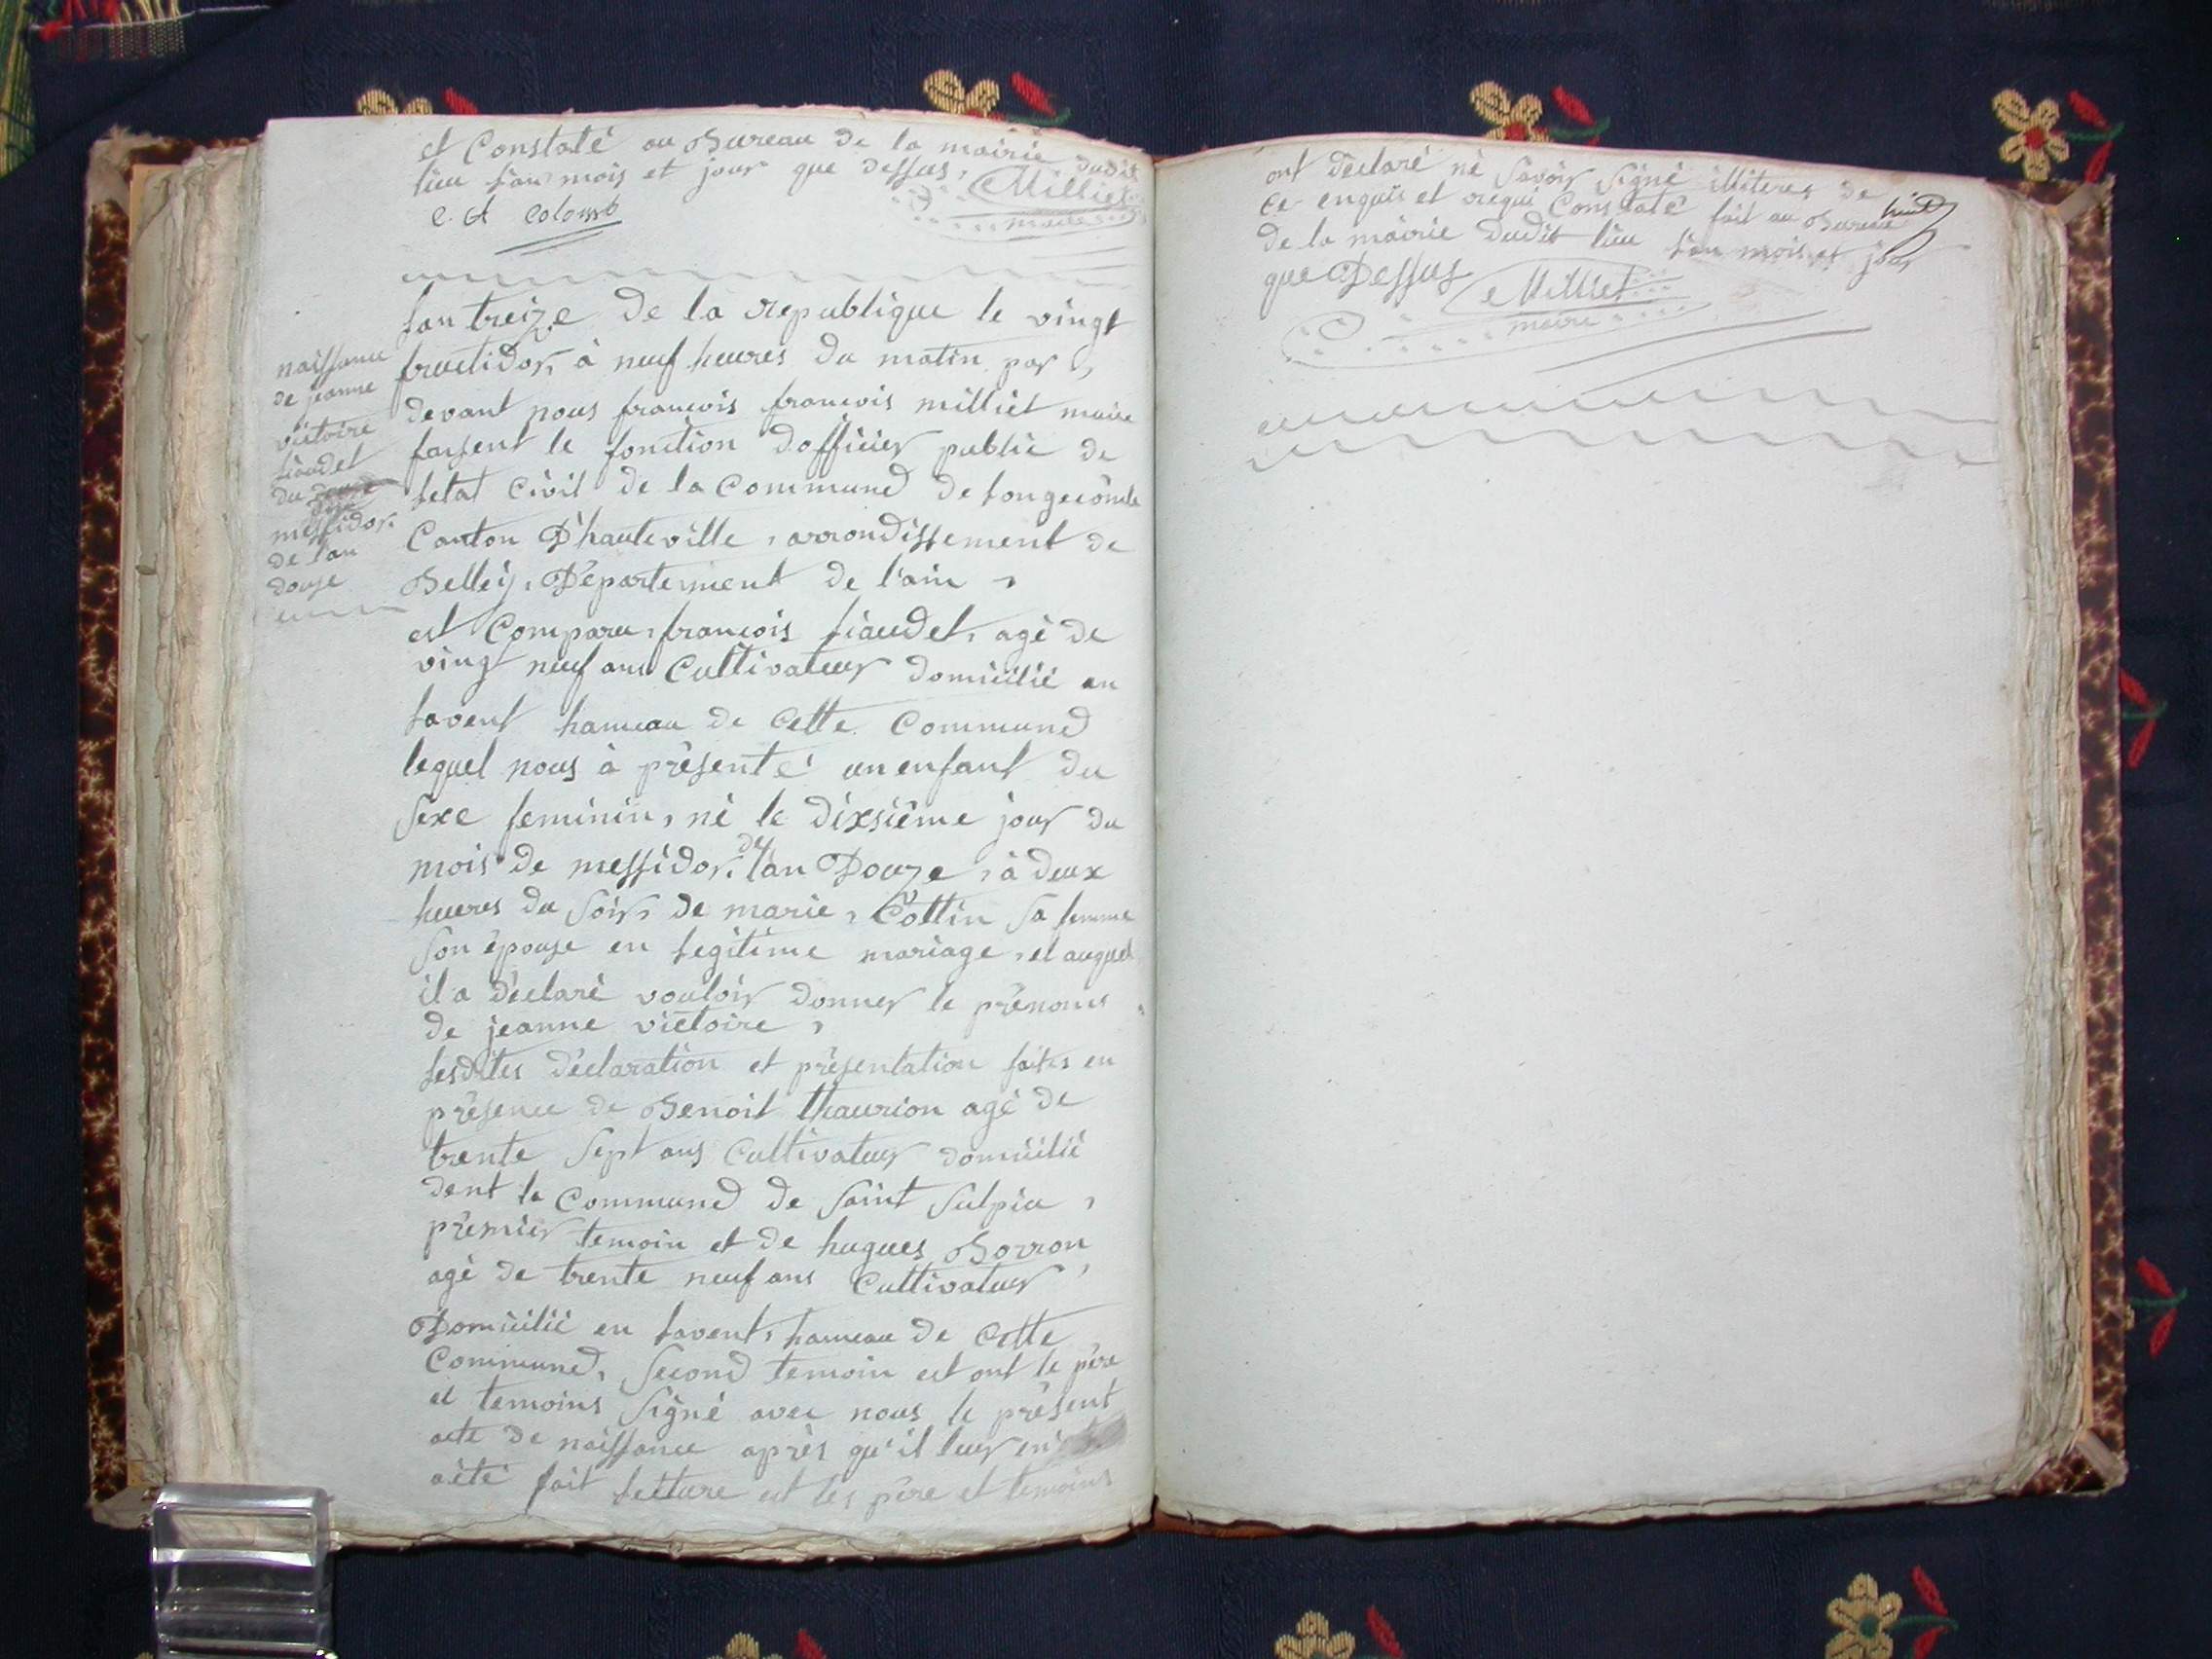 et Constaté au Bureau de la mairie dudit
lieu l'an mois et jour que dessus,
Milliet
maire
C. A Colomb
naissance
de jeanne
victoire
liaudet
du
messidor
de l'an
douze
lan treize de la republique le vingt
fructidor, à neuf heures du matin par,
devant nous francois francois milliet maire
faisent le fonction dofficier public de
letat civil de la Commune de longecombe
Canton D'hauteville, arrondissement de
Belley, Département de l'ain,
est Comparu, francois liaudet, agé de
vingt neuf ans Cultivateur domicilié en
lavent hameau de cette Commune
lequel nous à présenté un enfant du
sexe feminin, né le dixsième jour du
mois de messidor, de lan Douze, à deux
heures du soir, de marie, Cottin sa femme
son épouse en legitime mariage, et auquel
il a déclaré vouloir donner le prénoms
de jeanne victoire,
lesdites déclaration et présentation faites en
présence de Benoit thaurion agé de
trente sept ans Cultivateur domicilié
dent la Commune de saint sulpice,
premier temoin et de hugues Borron
agé de trente neuf ans Cultivateur,
Domicilié en lavent, hameau de cette
Commune, second temoin et ont le père
et temoins signé avec nous le présent
acte de naissance après qu'il leur en
aété fait lecture et les père et temoins
ont déclaré né savoir signé illiteres de
ce enquis et requi Constaté fait au Bureau
de la mairie dudit lieu l'an mois et jour
que Dessus
Milliet
maire